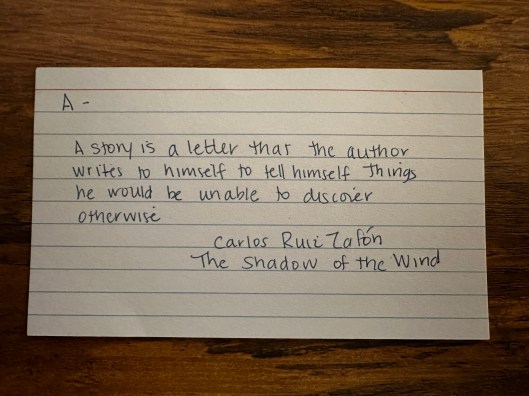 A -
A story is a letter that the author
writes to himself to tell himself things
he would be unable to discover
otherwise
Carlos Ruiz Zafón
The Shadow of the Wind